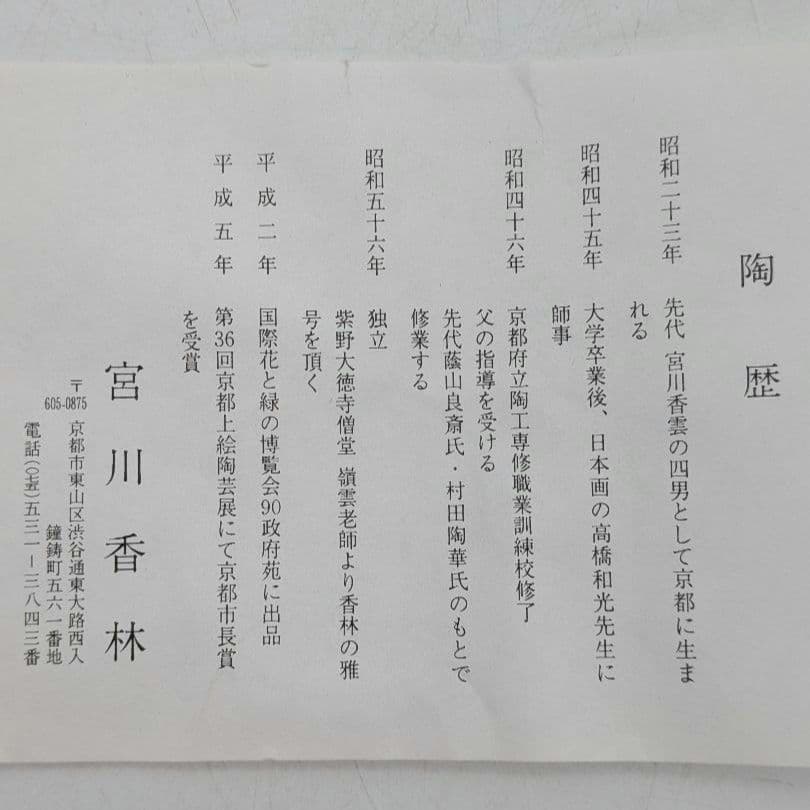 陶歴
昭和二十三年　先代 宮川香雲の四男として京都に生ま
れる
昭和四十五年　大学卒業後、日本画の高橋和光先生に
師事
昭和四十六年　京都府立陶工専修職業訓練校修了
父の指導を受ける
先代蔭山良斎氏・村田陶華氏のもとで
修業する
昭和五十六年　独立
紫野大徳寺僧堂 嶺雲老師より香林の雅
号を頂く
平成二年　国際花と緑の博覧会90政府苑に出品
平成五年　第36回京都上絵陶芸展にて京都市長賞
を受賞
宮川香林
〒605-0875　京都市東山区渋谷通東大路西入
鐘鋳町五六一番地
電話(〇七五)五三一ー三八四三番